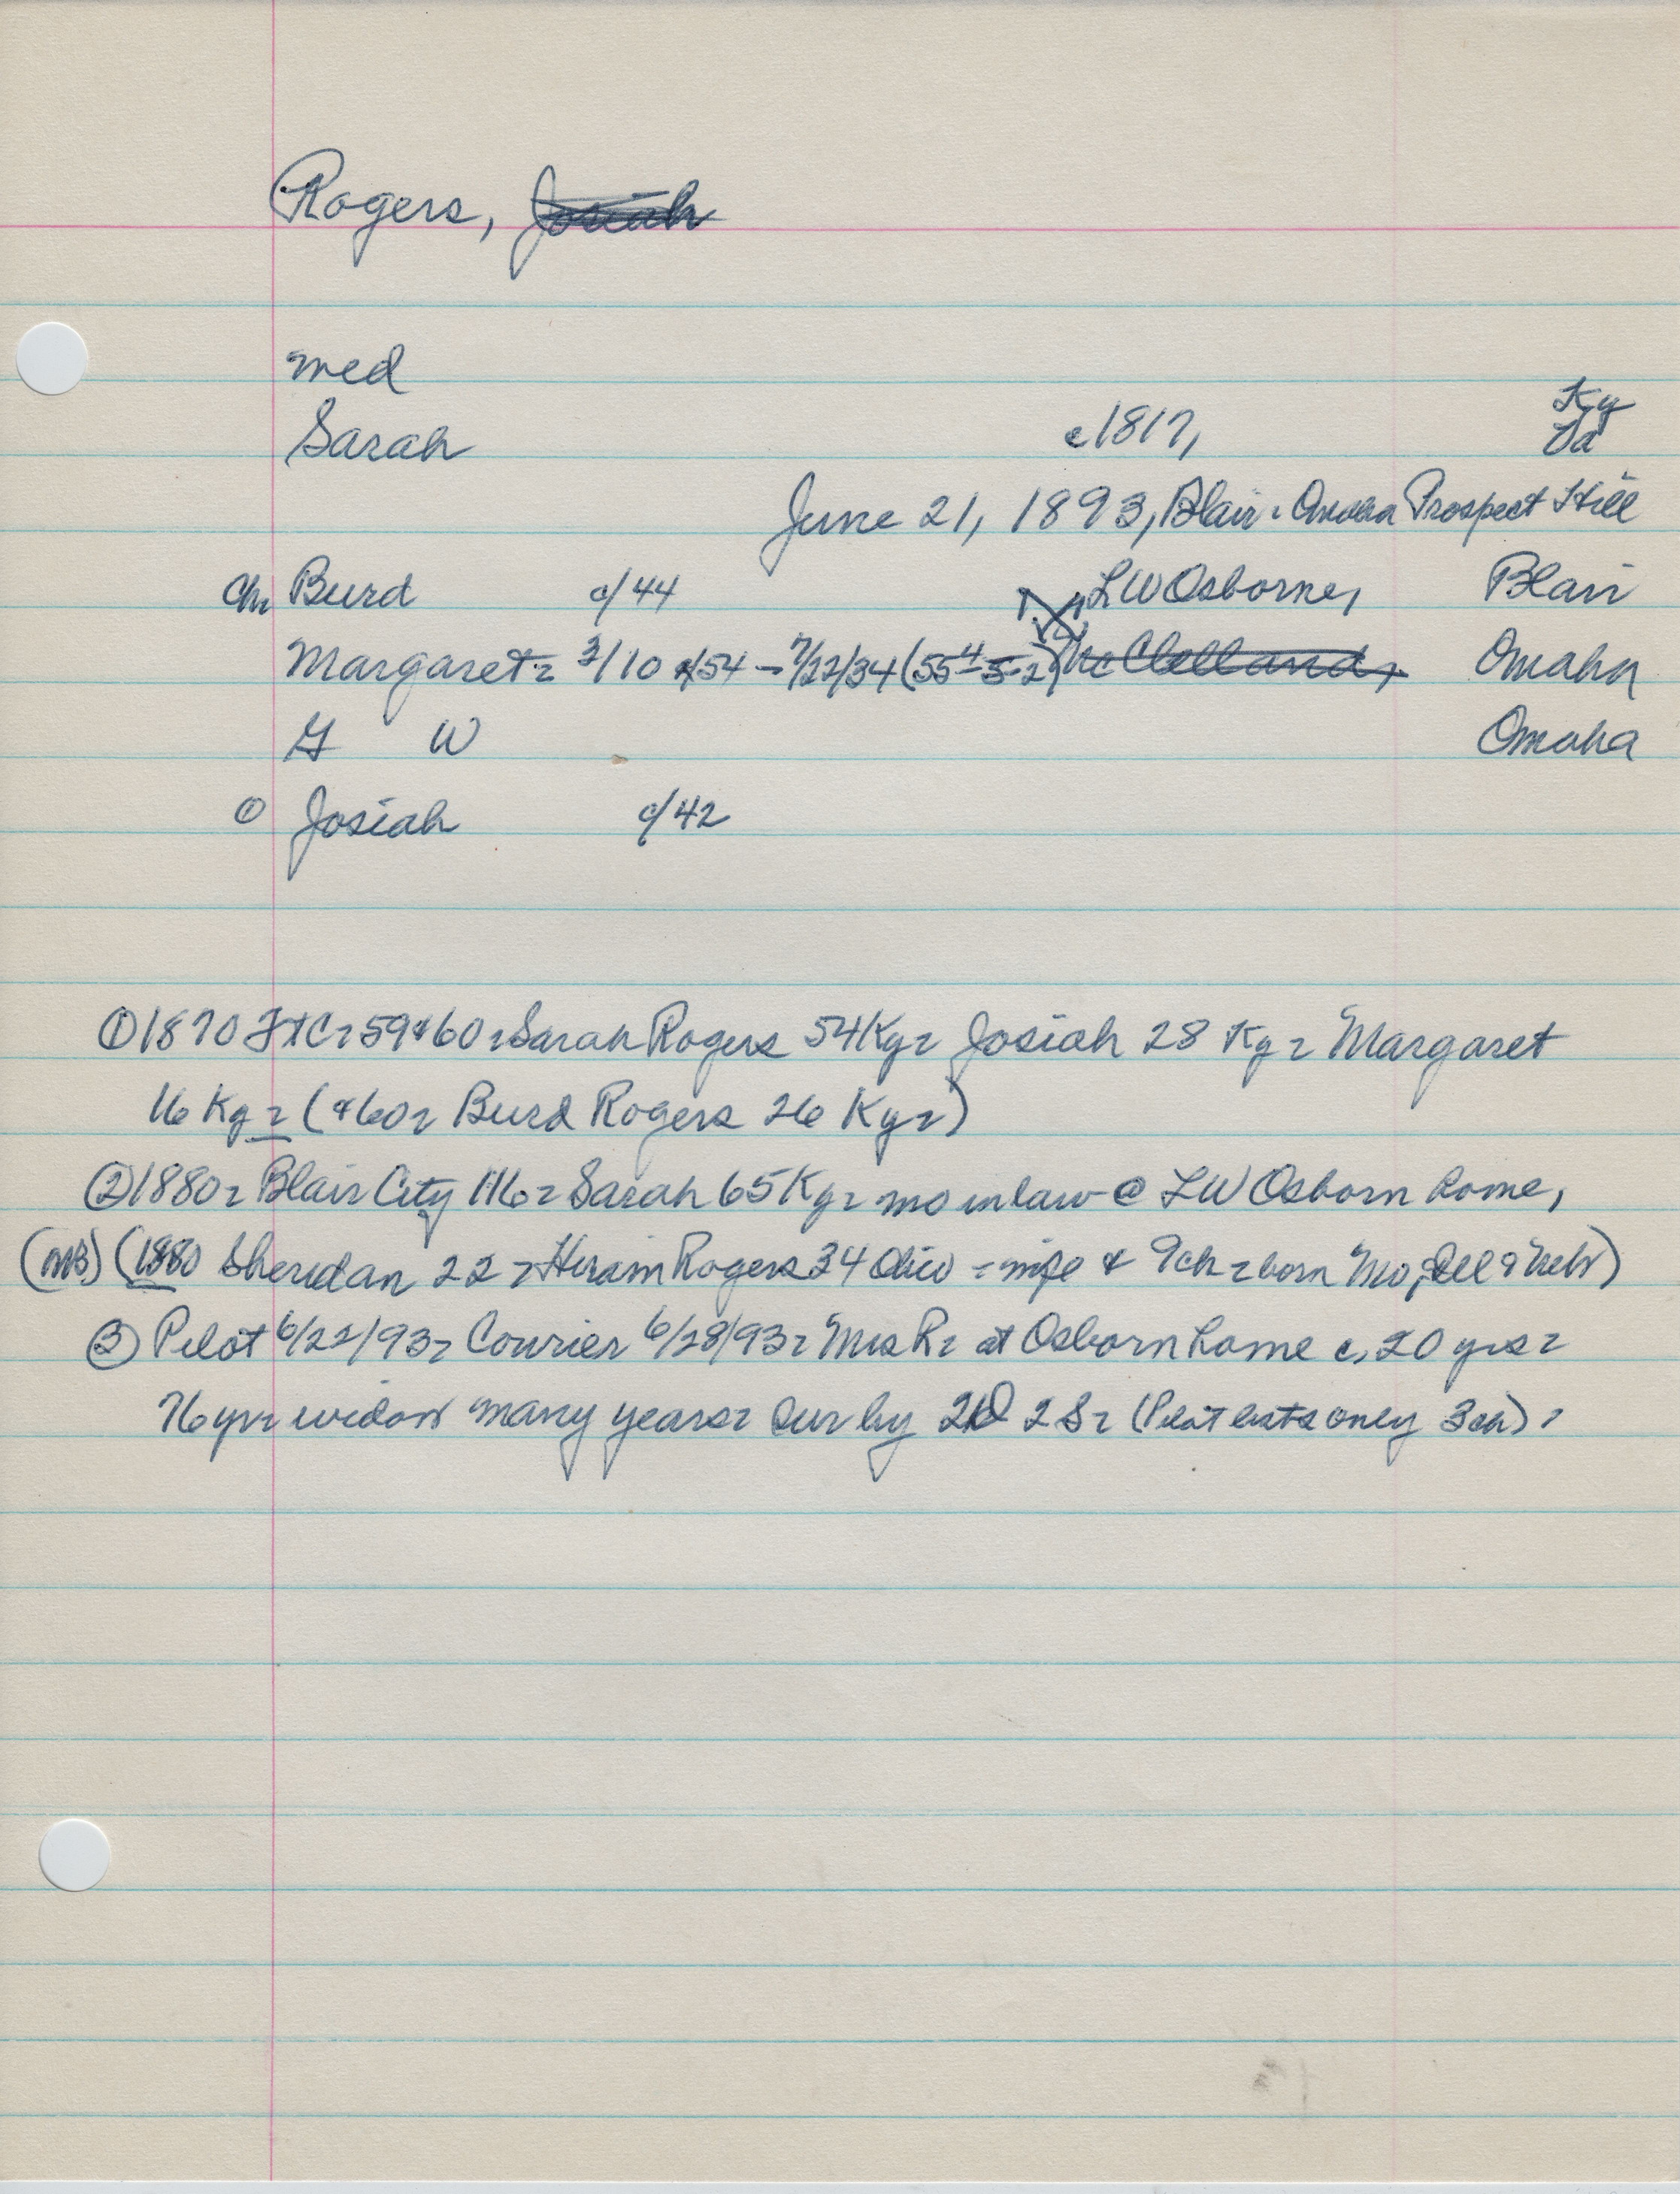 Rogers, Josiah
med
Ky
Sarah c1817, Va
June 21, 1893, Blair - Omaha Prospect Hill
Ch Burd c/44 LW Osborne, Blair
Margaret - 3/10 /54 - 7/22/34 McClelland, Omaha
G W Omaha
① Josiah c/42
① 1870 FtC - 59 & 60 - Sarah Rogers 54 Ky - Josiah 28 Ky - Margaret
16 Ky - (& 60 - Burd Rogers 26 Ky -)
② 1880 - Blair City 116 - Sarah 65 Ky - mo inlaw @ LW Osborn home,
(1880 Sheridan 22 - Hiram Rogers 34 Ohio - wife & 9ch - born Mo, Ill & Neb)
③ Pilot 6/22/93 - Courier 6/28/93 - Mrs R - at Osborn home c. 20 yrs -
76 yr - widow many years - Sur by 2D 2S - (Pilot lists only 3ch) -